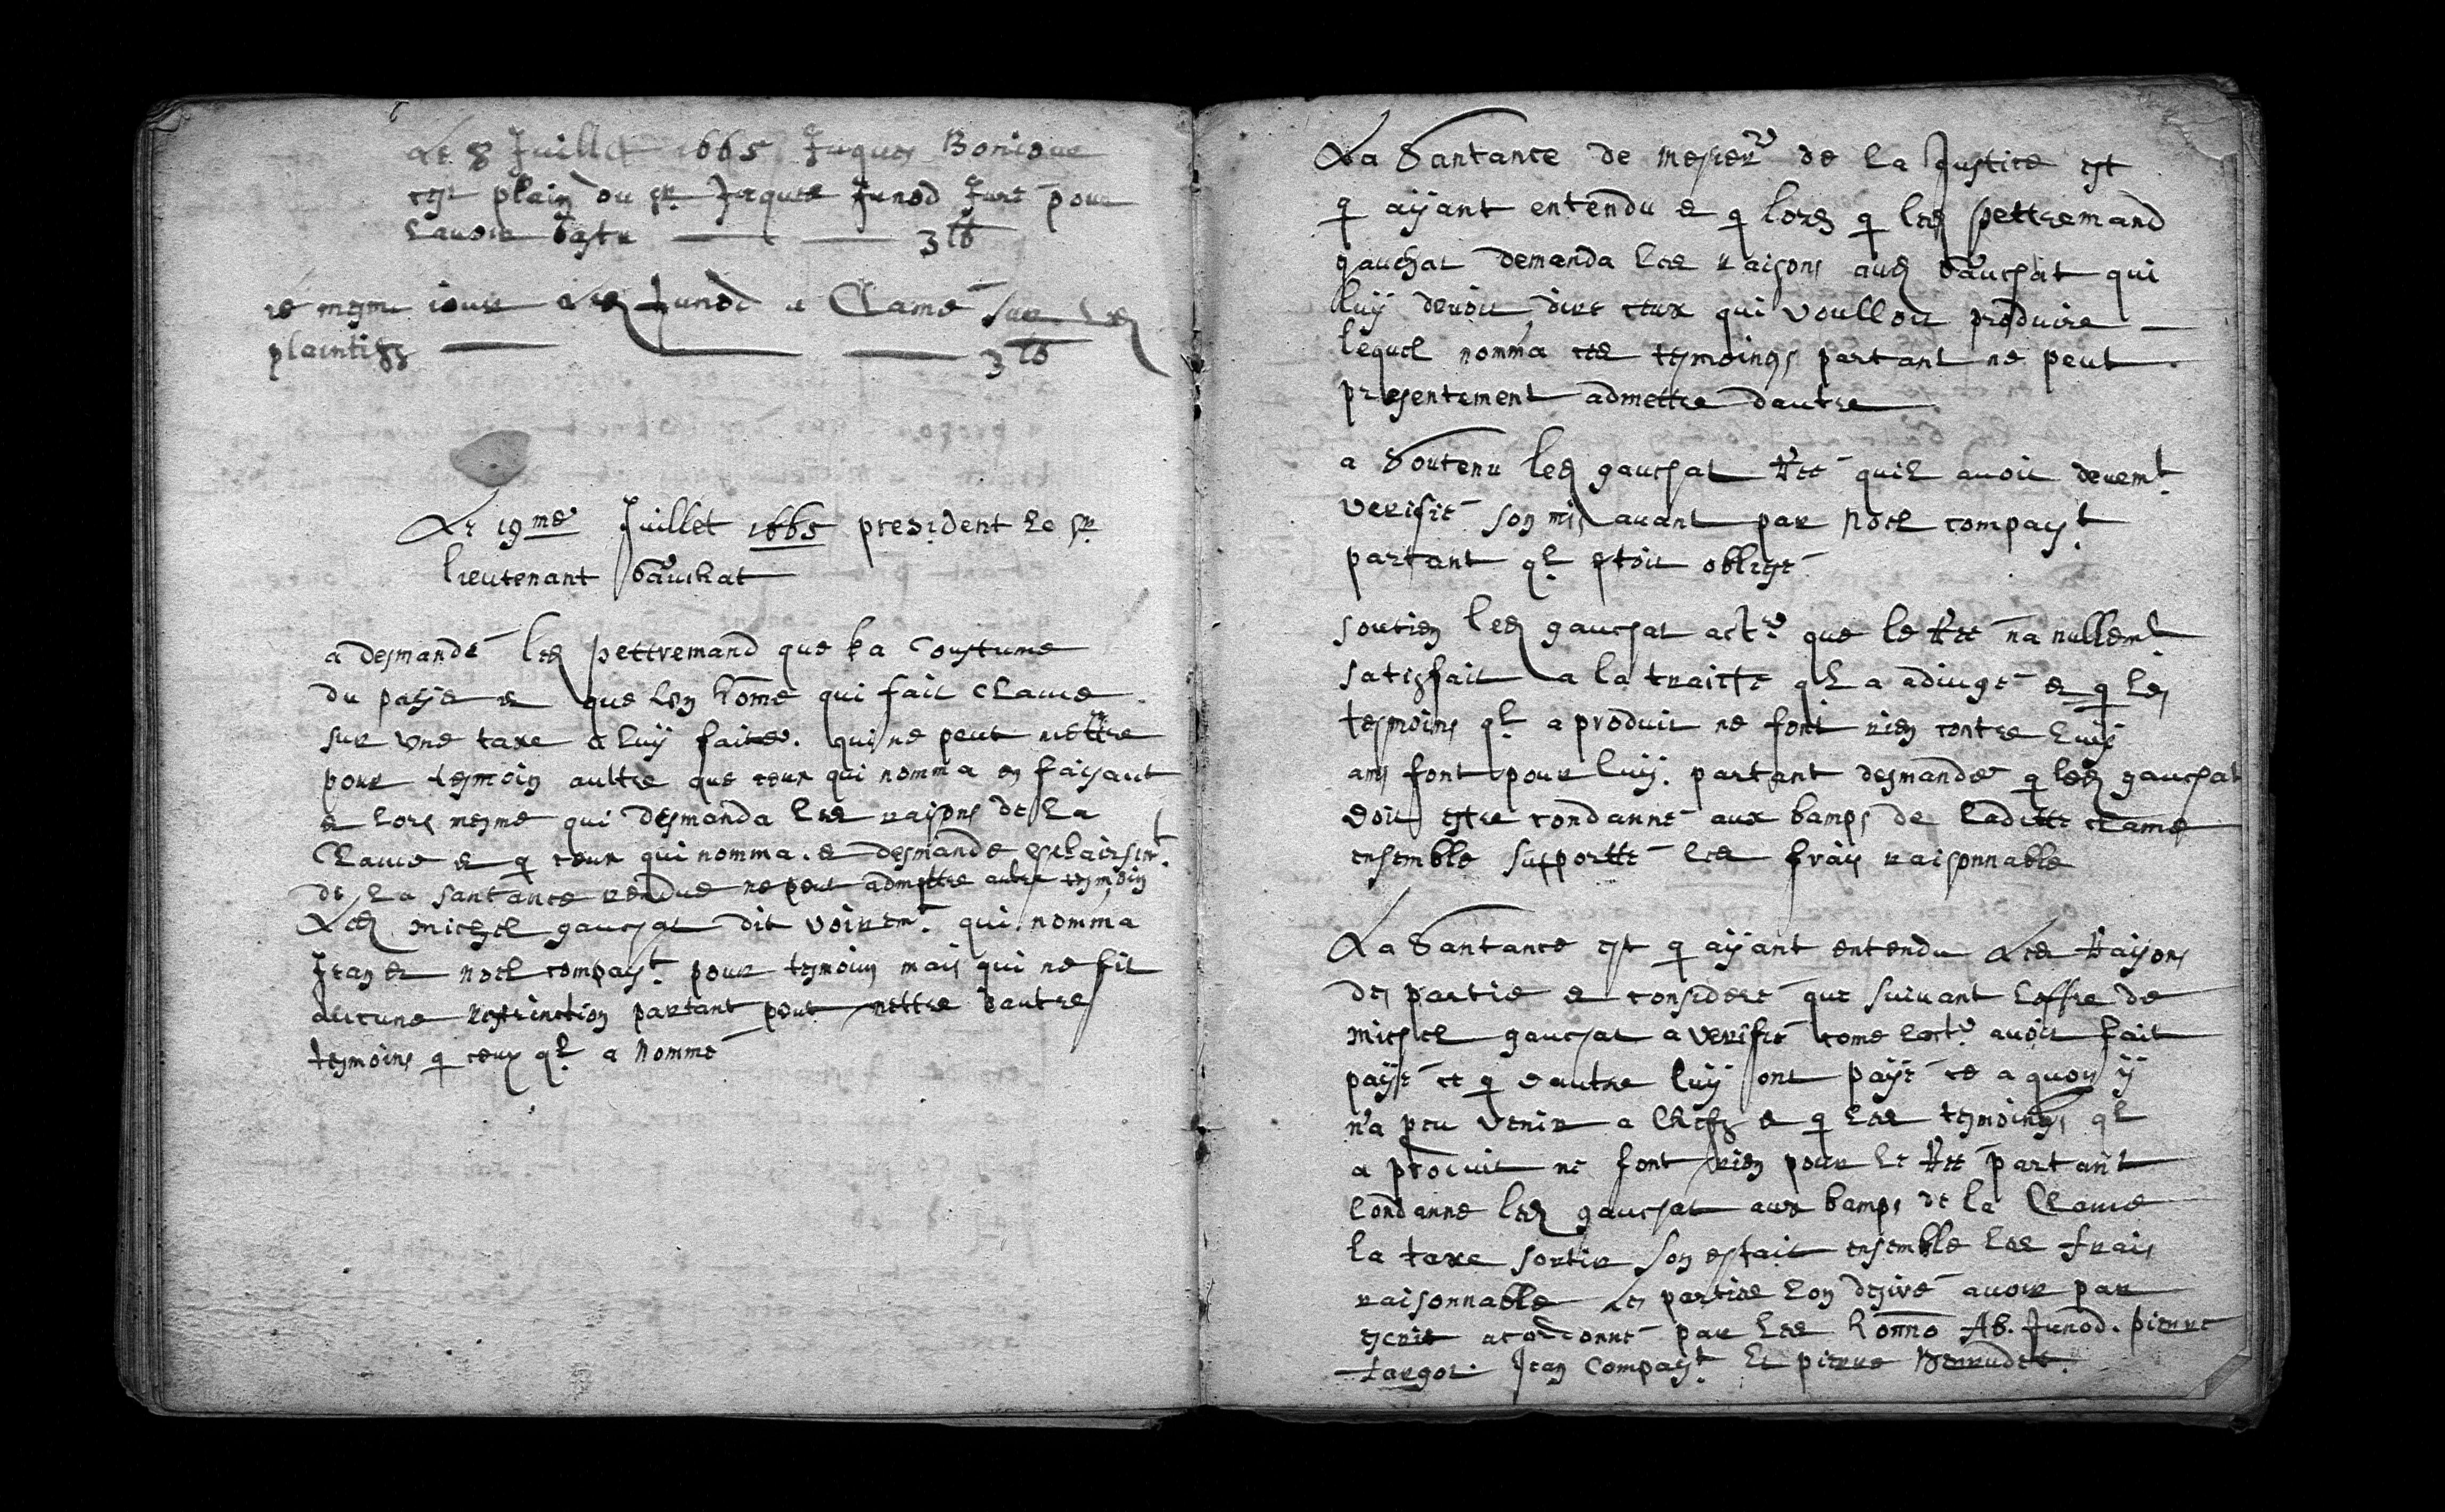 Le 8 Juillet 1665 Jaques Bonjour
cest plain du sr Jaques Junod Jure pour
lavoir bastu 3 lb
le mesme iour Led Junod a Clamé sur Led
plaintiff 3 lb
Le 19me Juillet 1665 president le sr
lieutenant Gauchat
a desmandé led pettremand que la Coustume
du pays e que lon home qui fait clame
sur une taxe a luy faite. qui ne peut mettre
pour tesmoin aultre que ceux qui nomma en faisant
e lors mesme qui desmanda les raisons de la
Clame e q ceux qui nomma. e desmande esclairsimt.
de la santance rendue ne peut admettre autre tesmoin
Led michel gauchat dit voiremt. qui nomma
Jean e noel compayt. pour temoin mais qui ne fit
aucune restrinction partant peut mettre dautre
tesmoins q ceux ql a nommé
La Santance de mesieurs de la Justice est
q ayant entendu e q lors q led pettremand
gauchat demanda les raisons aud Gauchat qui
luy devoit dire ceux qui voulloit produire
lequel nomma ces tesmoings partant ne peut
presentement admettre dautre
a Soutenu led gauchat Ree quil avoit devemt.
verifié son mis avant par noel compayt.
partant ql estoit obligé
soutien led gauchat actr. que le Ree na nullemt.
satisfait a la traitte ql a adiugé e q les
tesmoins ql a produit ne font rien contre luy
ains font pour luy. partant desmande q led gauchat
doit estre condanné aux bamps de laditte clame
ensemble supportté les frais raisonnable
La Santance est q ayant entendu Les Raisons
des partie e consideré que suivant loffre de
michel gauchat a verifié come lactr. avoit fait
payé et q dautre luy ont payé ce a quoy y
n'a peu venir a cheff e q les tesmoings ql
a produit ne font rien pour le Ree partant
Condanne led gauchat aux bamps de la Clame
la taxe sortir son esfait ensemble les frais
raisonnable Les partie lon desiré avoir par
escrit acordonné par les honno Ab. Junod. pierre
targot. Jean Compayt. Et pierre Berrudet.